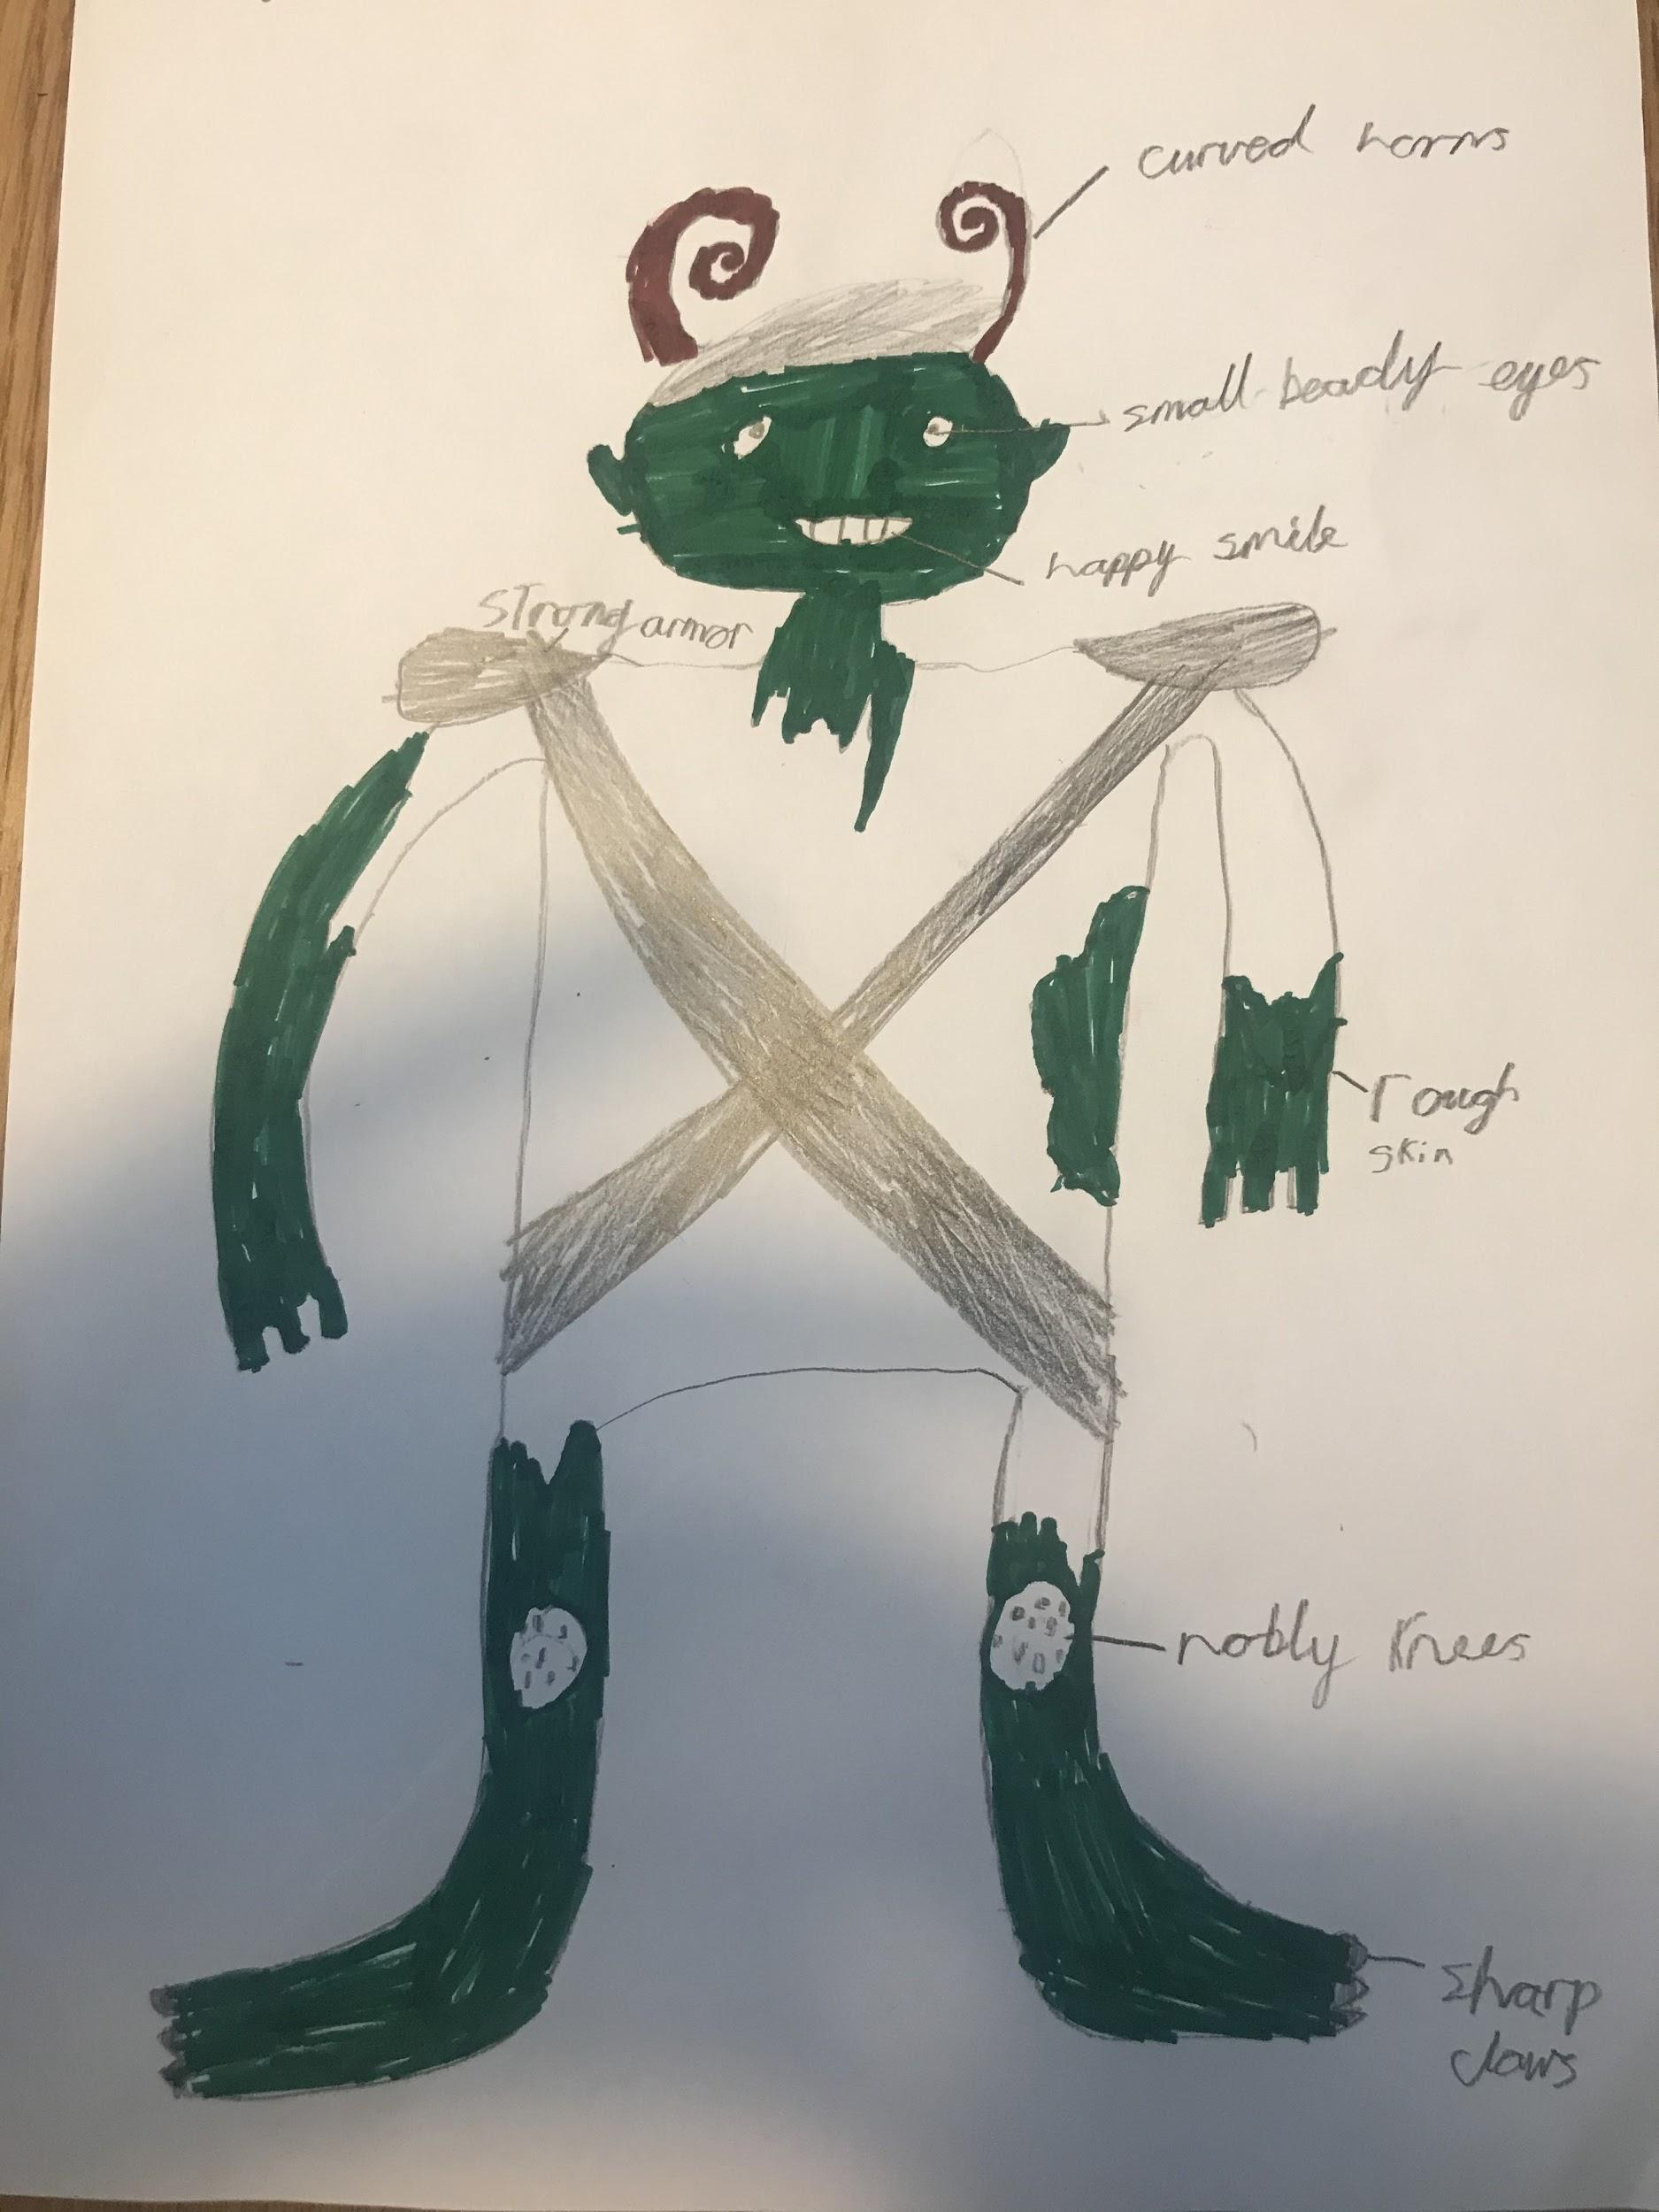 curved horns
small beady eyes
happy smile
Strong armor
rough
skin
nobly knees
sharp
claws